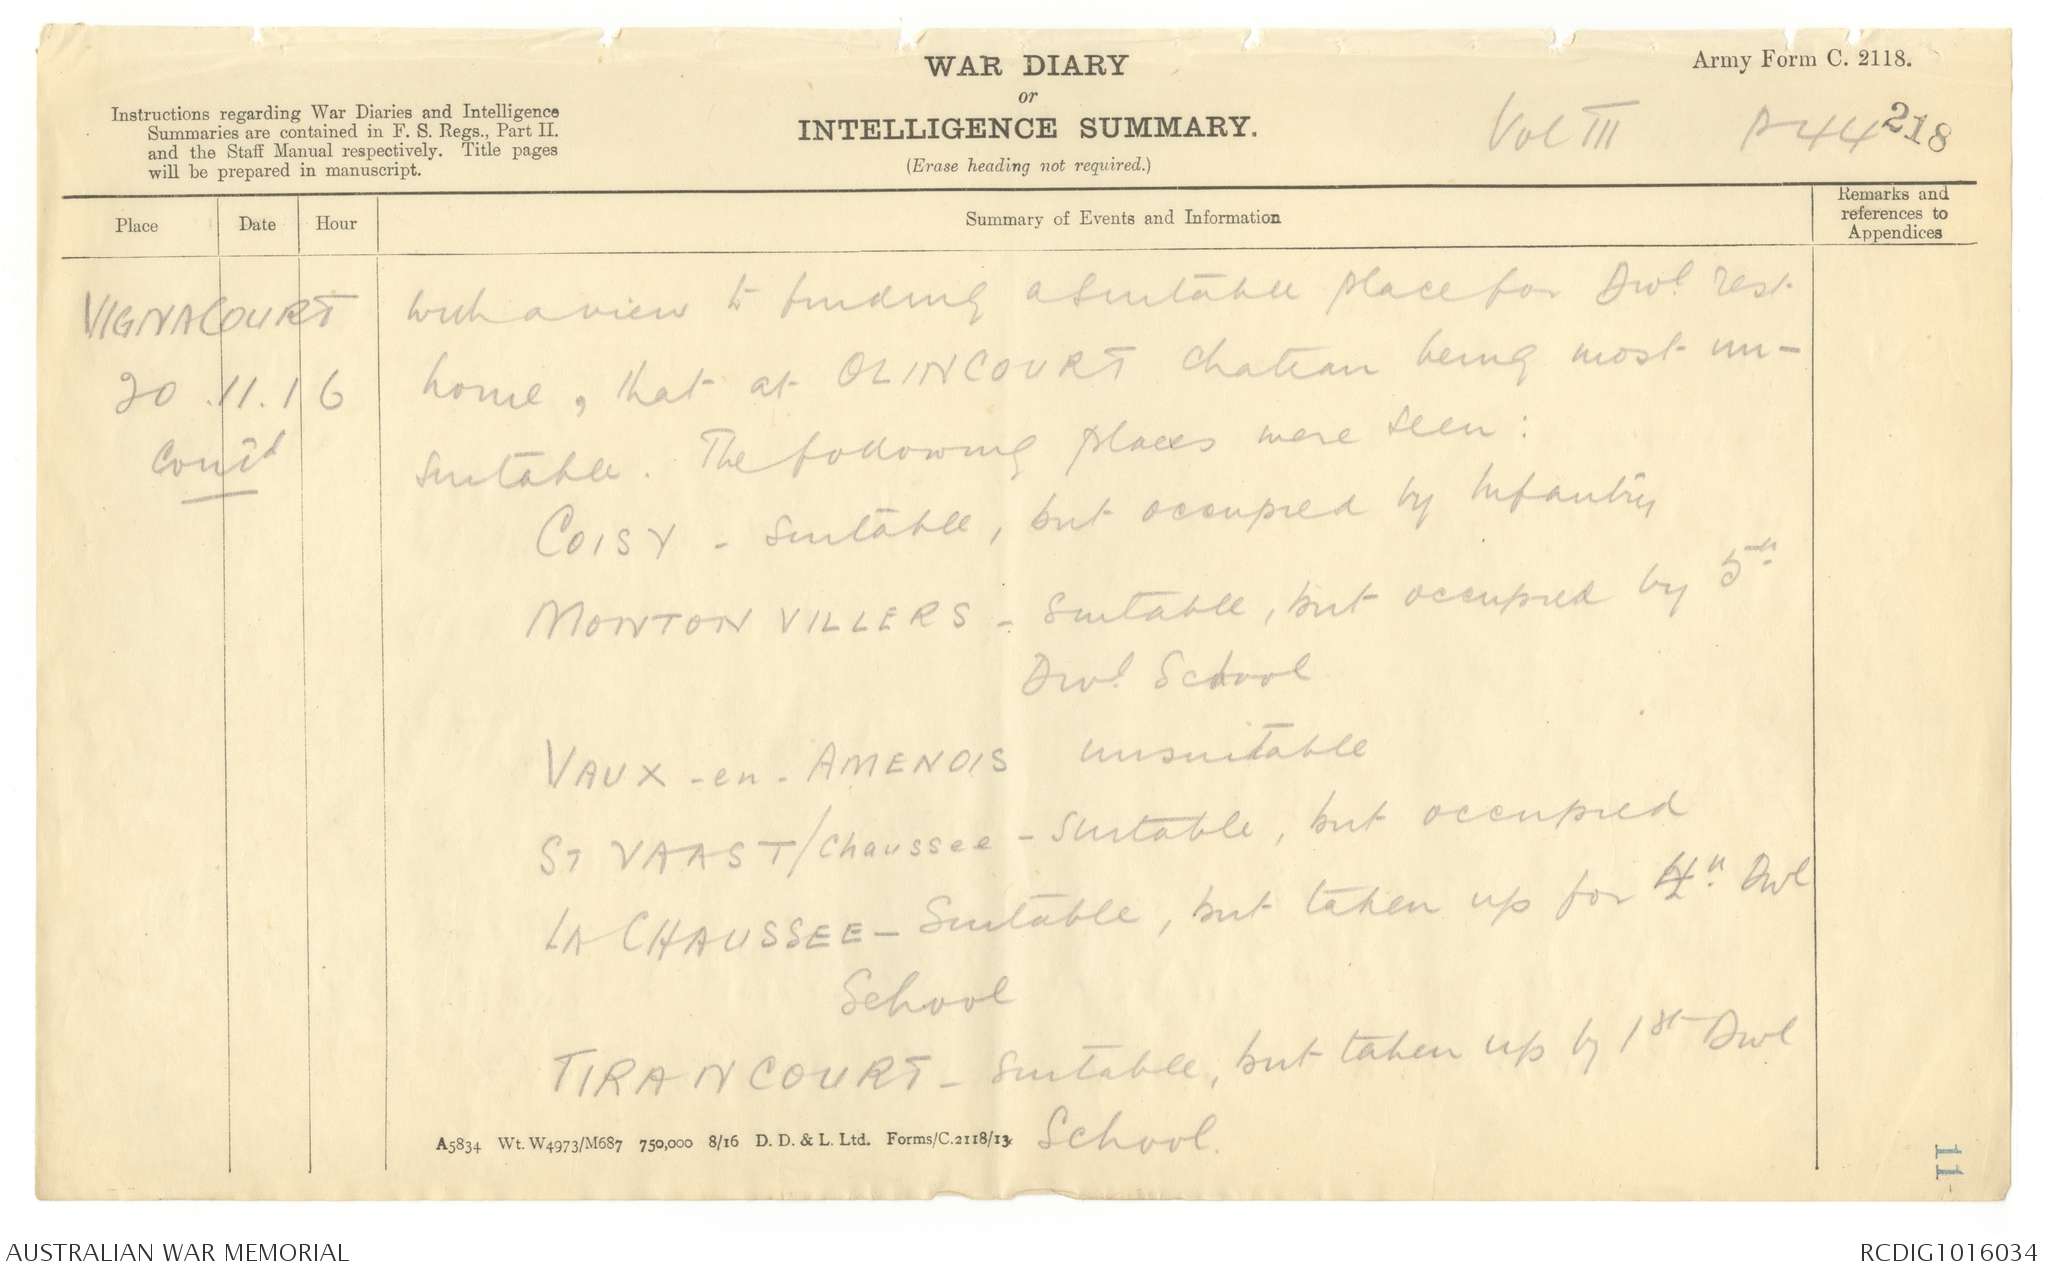 WAR DIARY
or
INTELLIGENCE SUMMARY.
(Erase heading not required.)
Army Form C. 2118.
Instructions regarding War Diaries and Intelligence
Summaries are contained in F. S. Regs., Part II.
and the Staff Manual respectively. Title pages
will be prepared in manuscript.
Vol III P 44 218
Place Date Hour Summary of Events and Information Remarks and references to Appendices
VIGNACOURT
20.11.16
Cont'd
with a view to finding a suitable place for Divl. rest
home, that at OLINCOURT Chateau being most un-
suitable. The following places were seen:
COISY - Suitable, but occupied by Infantry
MONTONVILLERS - Suitable, but occupied by 5th
Divl. School
VAUX-en-AMENOIS unsuitable
ST VAAST/Chaussee - Suitable, but occupied
LA CHAUSSEE - Suitable, but taken up for 4th Divl
School
TIRANCOURT - Suitable, but taken up by 1st Divl
School.
A5834 Wt. W4973/M687 750,000 8/16 D. D. & L. Ltd. Forms/C.2118/13
11
AUSTRALIAN WAR MEMORIAL
RCDIG1016034